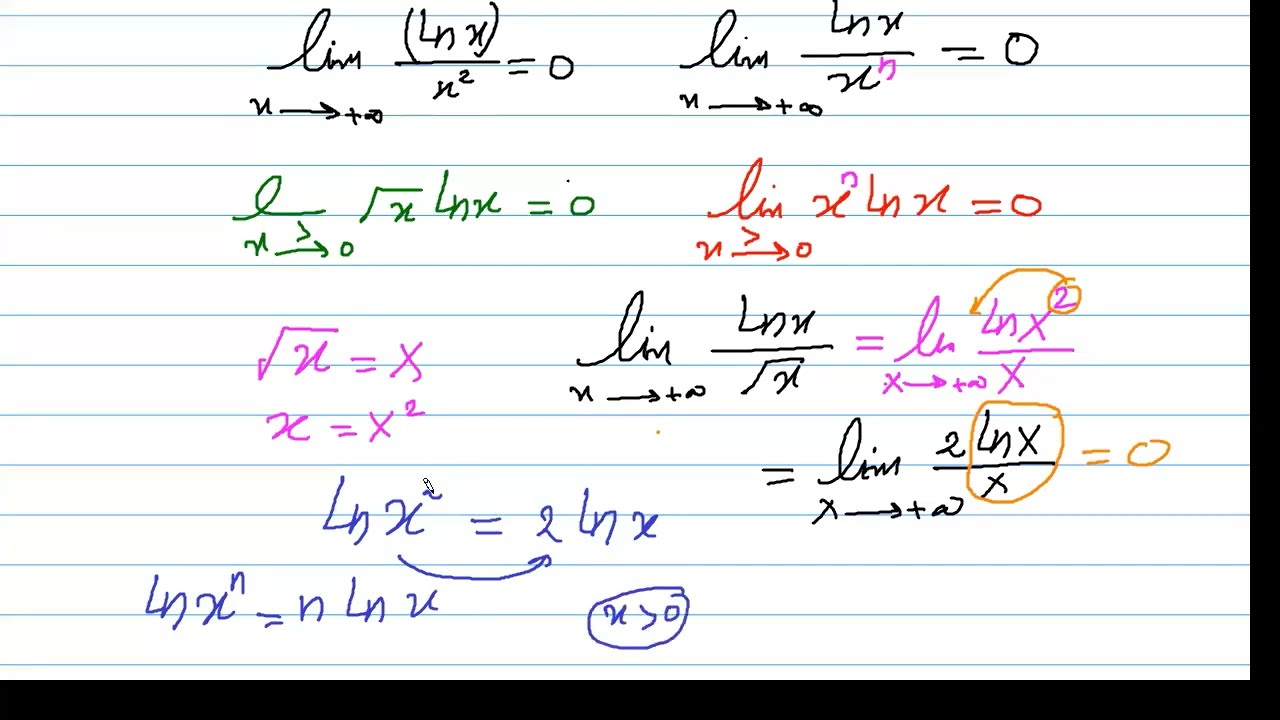 lim x→+∞ (ln x)/x² = 0
lim x→+∞ ln x/xⁿ = 0
l x→>0 √x ln x = 0
lin x→>0 xⁿ ln x = 0
√x = X
lim x→+∞ ln x/√x = ln X→+∞ ln X²/X
x = X²
= lim X→+∞ 2 ln X/X = 0
ln x² = 2 ln x
ln xⁿ = n ln x
x > 0